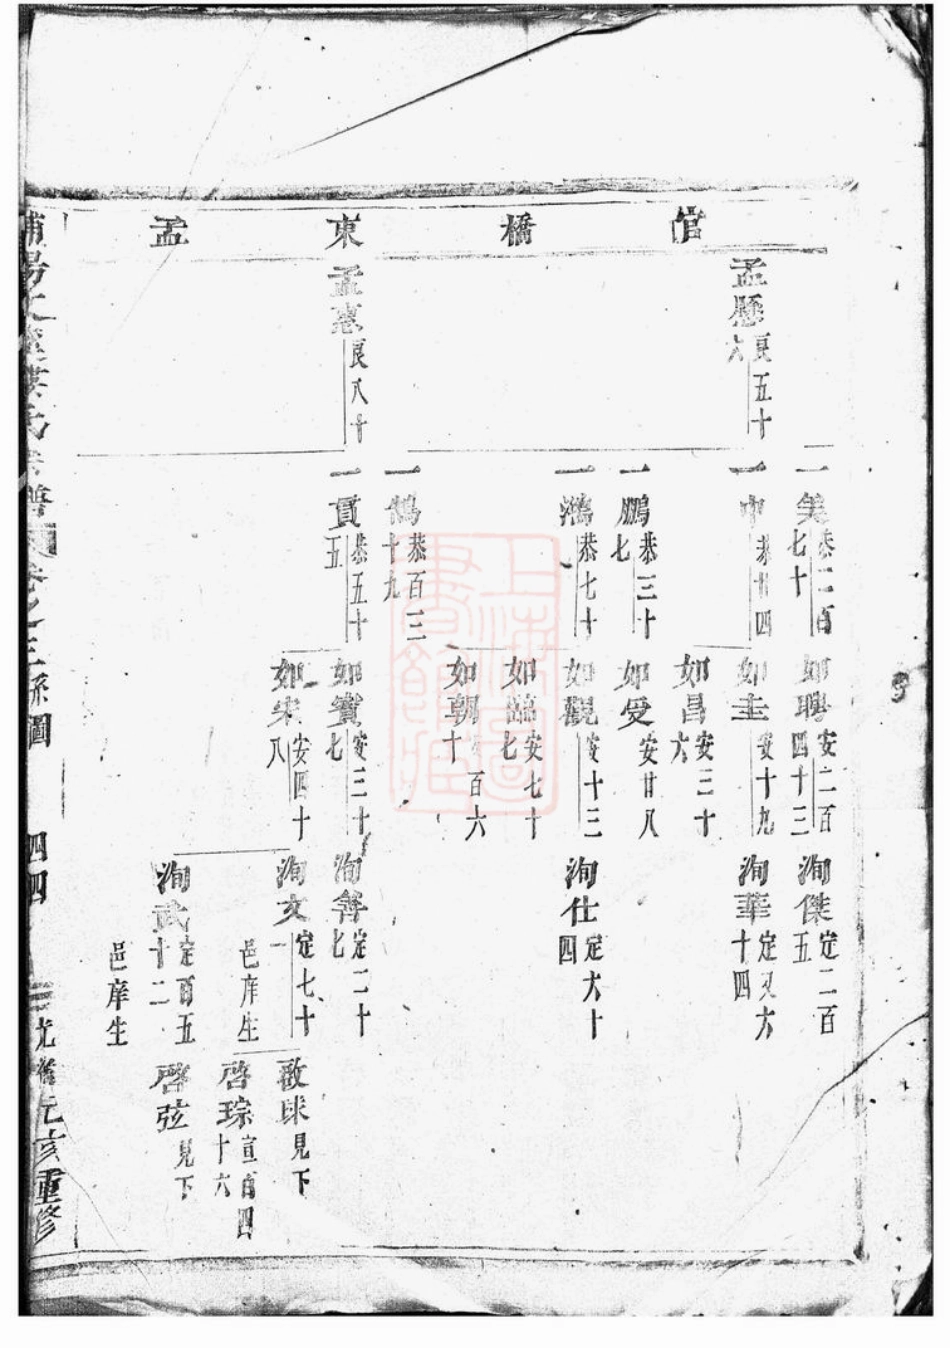 官 橋 東 孟
孟懸 良五十六
孟惠 良八十
一美 恭二百七十
一中 恭廿四
一鵬 恭三十七
一鴻 恭七十
一鶴 恭百三十九
一貫 恭五十五
如聘 安二百四十三
如圭 安十九
如昌 安三十六
如受 安廿八
如觀 安十三
如臨 安七十七
如朝 百六十
如賓 安三十七
如宋 安四十八
洵傑 定二百五
洵華 定又六十四
洵仕 定六十四
洵善 定二十七
洵文 定七十一 邑庠生
洵武 定百五十二 邑庠生
啟球 見下
啓琮 宣百四十六
啓弦 見下
氏宗譜 卷之三系圖 四四 重修